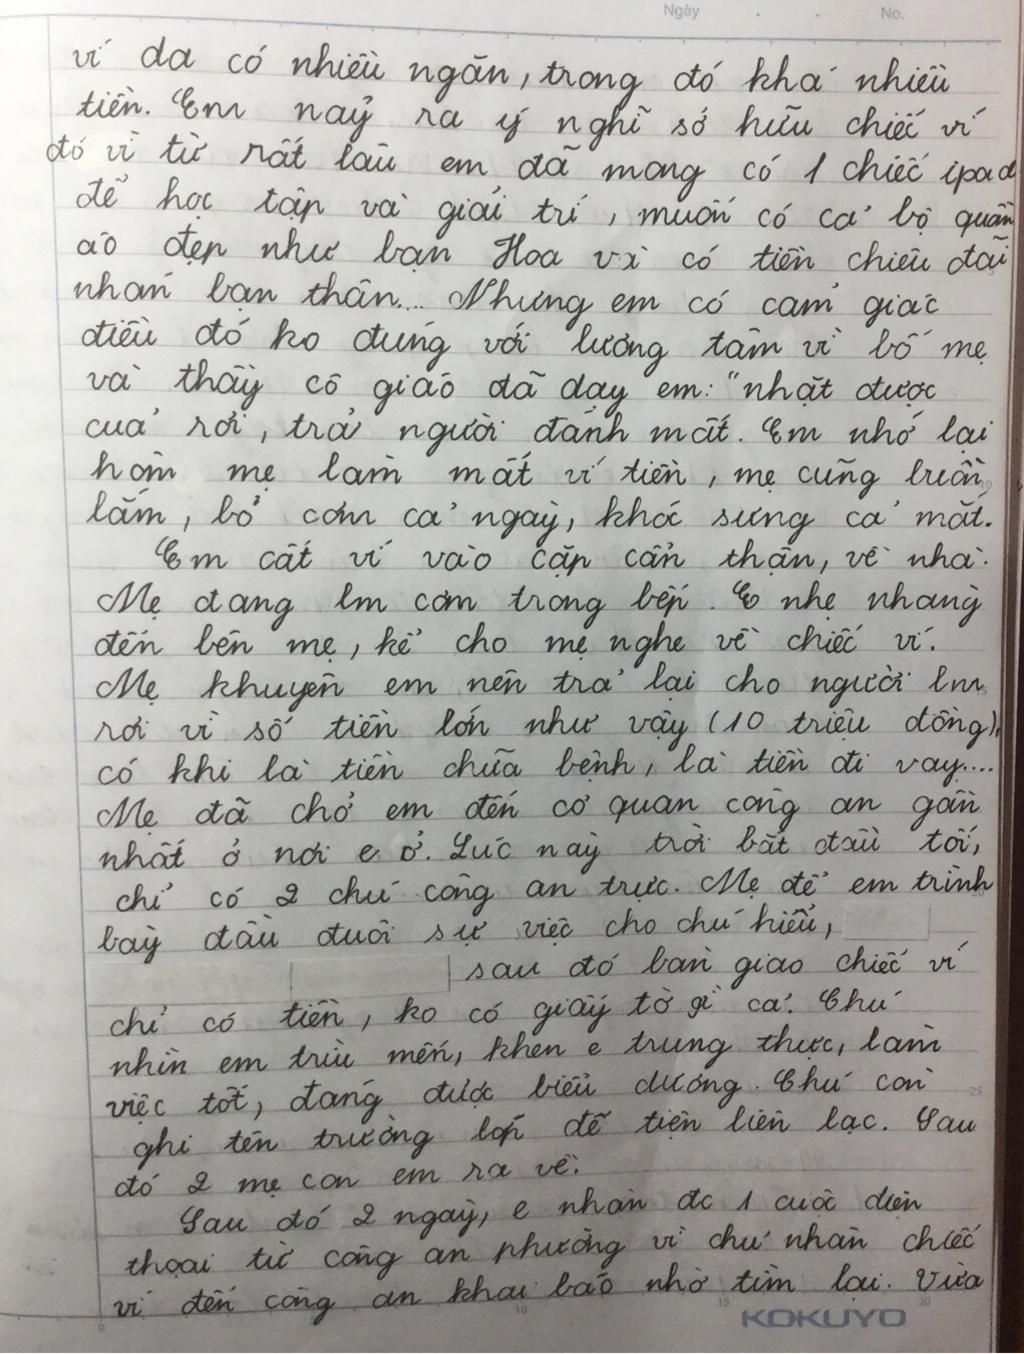 Ngày . . No.
ví da có nhiều ngăn, trong đó khá nhiều
tiền. Em nảy ra ý nghĩ sở hữu chiếc ví
đó vì từ rất lâu em đã mong có 1 chiếc ipad
để học tập và giải trí, muốn có cả bộ quần
áo đẹp như bạn Hoa và có tiền chiêu đãi
nhóm bạn thân... Nhưng em có cảm giác
điều đó ko đúng với lương tâm vì bố mẹ
và thầy cô giáo đã dạy em: "nhặt được
của rơi, trả người đánh mất. Em nhớ lại
hôm mẹ làm mất ví tiền, mẹ cũng buồn
lắm, bỏ cơm cả ngày, khóc sưng cả mắt.
Em cất ví vào cặp cẩn thận, về nhà.
Mẹ đang lm cơm trong bếp. E nhẹ nhàng
đến bên mẹ, kể cho mẹ nghe về chiếc ví.
Mẹ khuyên em nên trả lại cho người lm
rơi vì số tiền lớn như vậy (10 triệu đồng),
có khi là tiền chữa bệnh, là tiền đi vay....
Mẹ đã chở em đến cơ quan công an gần
nhất ở nơi e ở. Lúc này trời bắt đầu tối,
chỉ có 2 chú công an trực. Mẹ để em trình
bày đầu đuôi sự việc cho chú hiểu,
sau đó bàn giao chiếc ví
chỉ có tiền, ko có giấy tờ gì cả. Chú
nhìn em trìu mến, khen e trung thực, làm
việc tốt, đáng được biểu dương. Chú còn
ghi tên trường lớp để tiện liên lạc. Sau
đó 2 mẹ con em ra về.
Sau đó 2 ngày, e nhận đc 1 cuộc điện
thoại từ công an phường vì chủ nhân chiếc
ví đến công an khai báo nhờ tìm lại. Vừa
10 15 20
KOKUYO